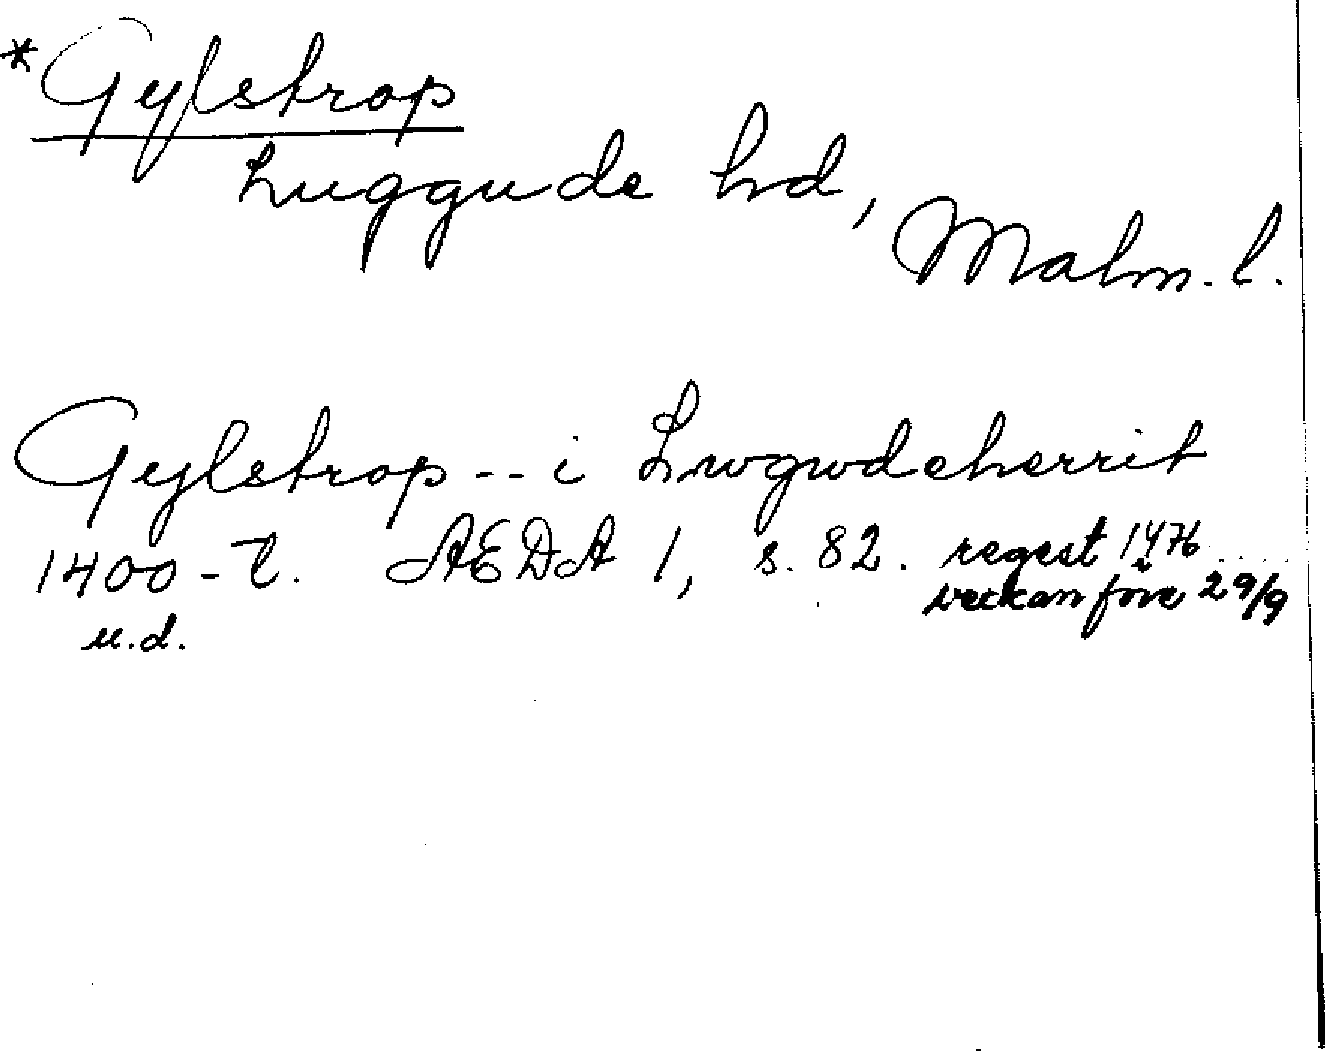 *Gylstrop
Luggude hd,
Malm. l.
Gylstrop -- i Lwgwdeherrit
1400-t. AEDA 1, s. 82. regest 1476
u.d. veckan före 29/9